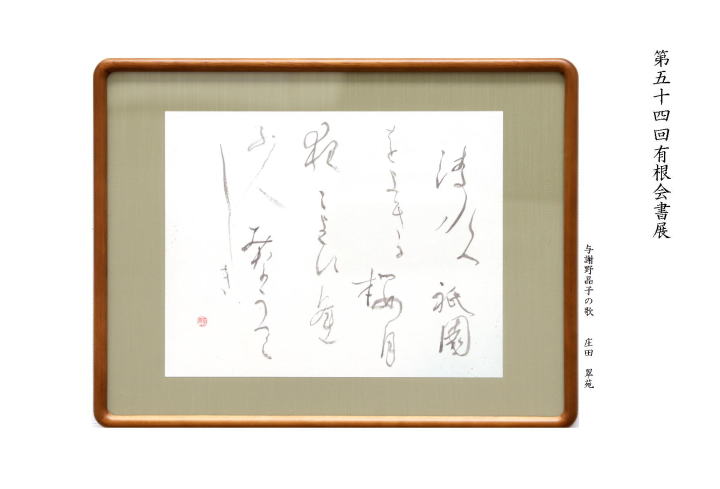 第五十四回有根会書展
与謝野晶子の歌　庄田　翠苑
清水へ祇園
をよぎる桜月
夜こよひ逢
ふ人みなうつく
しき